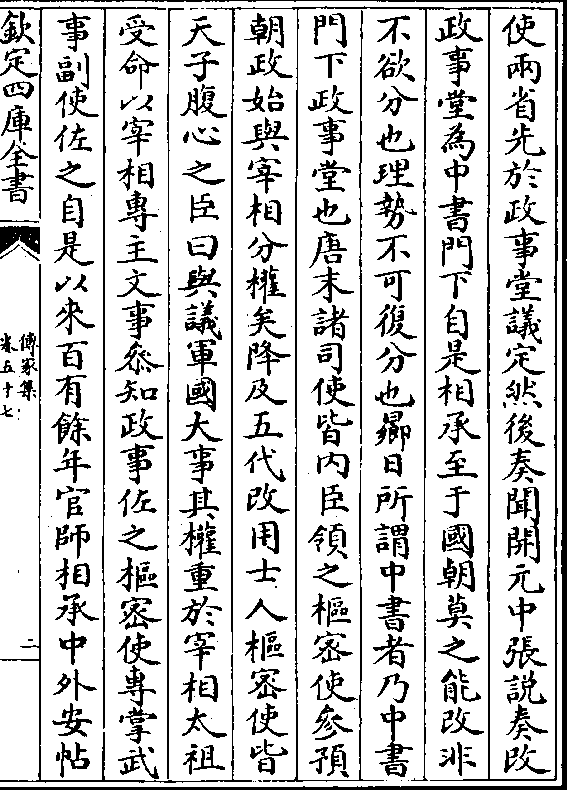 使兩省先於政事堂議定然後奏聞開元中張說奏改
政事堂為中書門下自是相承至于國朝莫之能改非
不欲分也理勢不可復分也曏日所謂中書者乃中書
門下政事堂也唐末諸司使皆內臣領之樞密使參預
朝政始與宰相分權矣降及五代改用士人樞密使皆
天子腹心之臣曰與議軍國大事其權重於宰相太祖
受命以宰相專主文事叅知政事佐之樞密使專掌武
事副使佐之自是以來百有餘年官師相承中外安帖
欽定四庫全書
傳家集
卷五十七
二